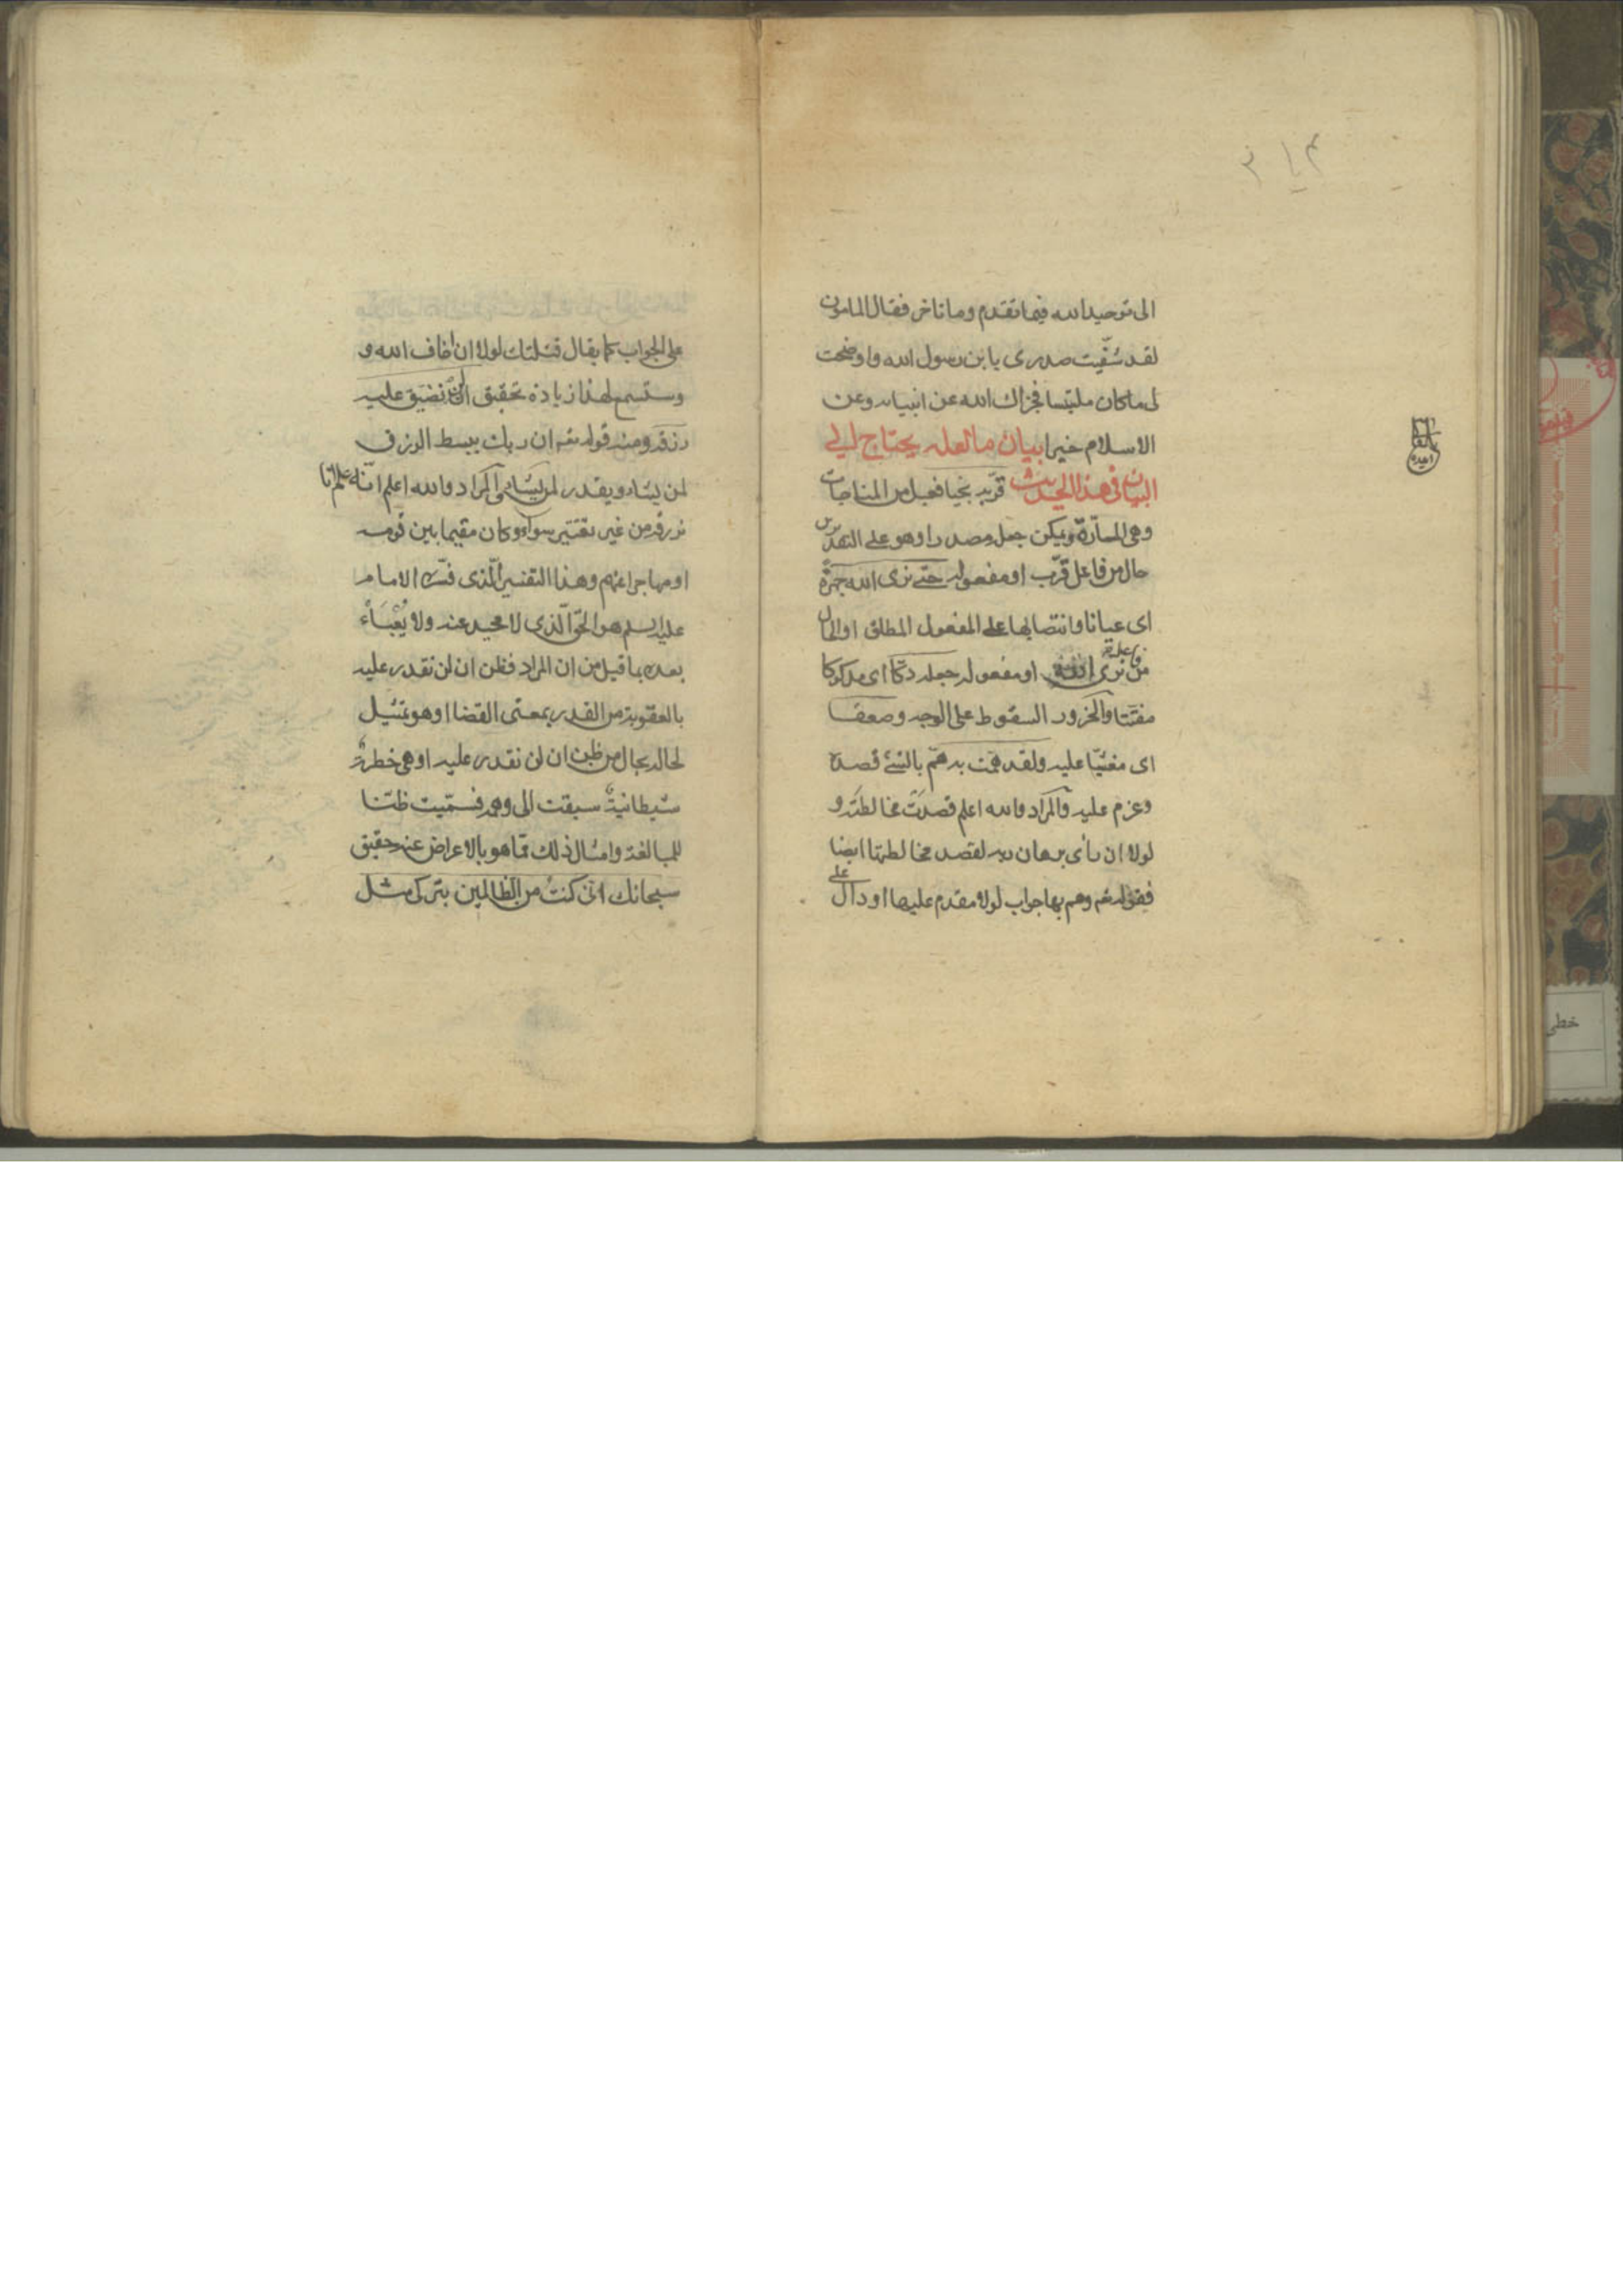 الى توحيد الله فيما تقدم وما تاخر فقال المامون
لقد شفيت صدرى يابن رسول الله واوضحت
لى ما كان ملتبسا فجزاك الله عن انبيائه وعن
الاسلام خيرا بيان ما لعله يحتاج الى
البيان فى هذا الحديث قرّبه نجيا فعيل من المناجات
وهى المسارّة ويمكن جعله مصدرا وهو على التقديرين
حال من فاعل قرّب او مفعوله حتى نرى الله جهرة
اى عيانا وانتصابها على المفعول المطلق او الحال
من فاعل نرى او مفعوله جعله دكّا اى مدكوكا
مفتتا والخرور السقوط على الوجه وصعقا
اى مغشيّا عليه ولقد همّت به همّ بالشئ قصده
وعزم عليه والمراد والله اعلم قصدت مخالطته و
لولا ان رأى برهان ربه لقصد مخالطتها ايضا
فقوله تعه وهم بها جواب لولا مقدم عليها او دال على
على الجواب كما يقال قتلتك لولا ان اخاف الله و
وستسمع لهذا زيادة تحقيق ان لن نضيق عليه
رزقه ومنه قوله تعه ان ربك يبسط الرزق
لمن يشاء ويقدر لمن يشاء والمراد والله اعلم انّه علم انا
نرزقه من غير تقتير سواء كان مقيما بين قومه
او مهاجرا عنهم وهذا التفسير الّذى فسّره الامام
عليه السلم هو الحق الّذى لا محيد عنه ولا يُعْبَأْ
بعده بما قيل من ان المراد فظن ان لن نقدر عليه
بالعقوبة من القدر بمعنى القضا او هو تمثيل
لحاله بحال من ظن ان لن نقدر عليه او هى خطرة
شيطانية سبقت الى وهمه فسمّيت ظنّا
للمبالغة وامثال ذلك مما هو بالاعراض عنه حقيق
سبحانك انى كنت من الظالمين بتركى مثل
خطى